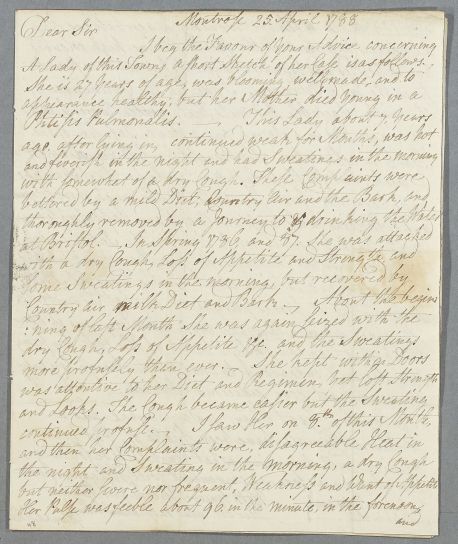 Montrose 25. April 1788
Dear Sir
I beg the Favour of your Advice concerning
A Lady of this Town, a short Sketch of her Case is as follows.
She is 27 Years of age, was blooming, well made, and to
appearance healthy, but her Mother died young in a
Phtisis Pulmonalis. — This Lady about 7 Years
ago, after lying in, continued weak for Months, was hot
and feverish in the night and had Sweatings in the morning
with somewhat of a dry Cough. These Complaints were
bettered by a mild Diet, Country Air and the Bark, and
thoroughly removed by a Journey to & drinking the Waters
at Bristol. — In Spring 1786, and 87. She was attacked
with a dry Cough, Loss of Appetite and Strength, and
some Sweatings in the morning, but recovered by
Country Air, Milk Diet and Bark. — About the begin
:ning of last Month She was again seized with the
dry Cough, Loss of Appetite &c. and the Sweatings
more profusely then ever. She kept within Doors
was attentive to her Diet and Regimen, but lost Strength
and Looks. The Cough became easier but the Sweating
continued profuse. — I saw Her on 8th of this Month,
and then her Complaints were, disagreeable Heat in
the night and Sweating in the morning, a dry Cough
but neither severe nor frequent, Weakness and Want of Appetite
Her Pulse was feeble about 96 in the minute, in the forenoon,
and